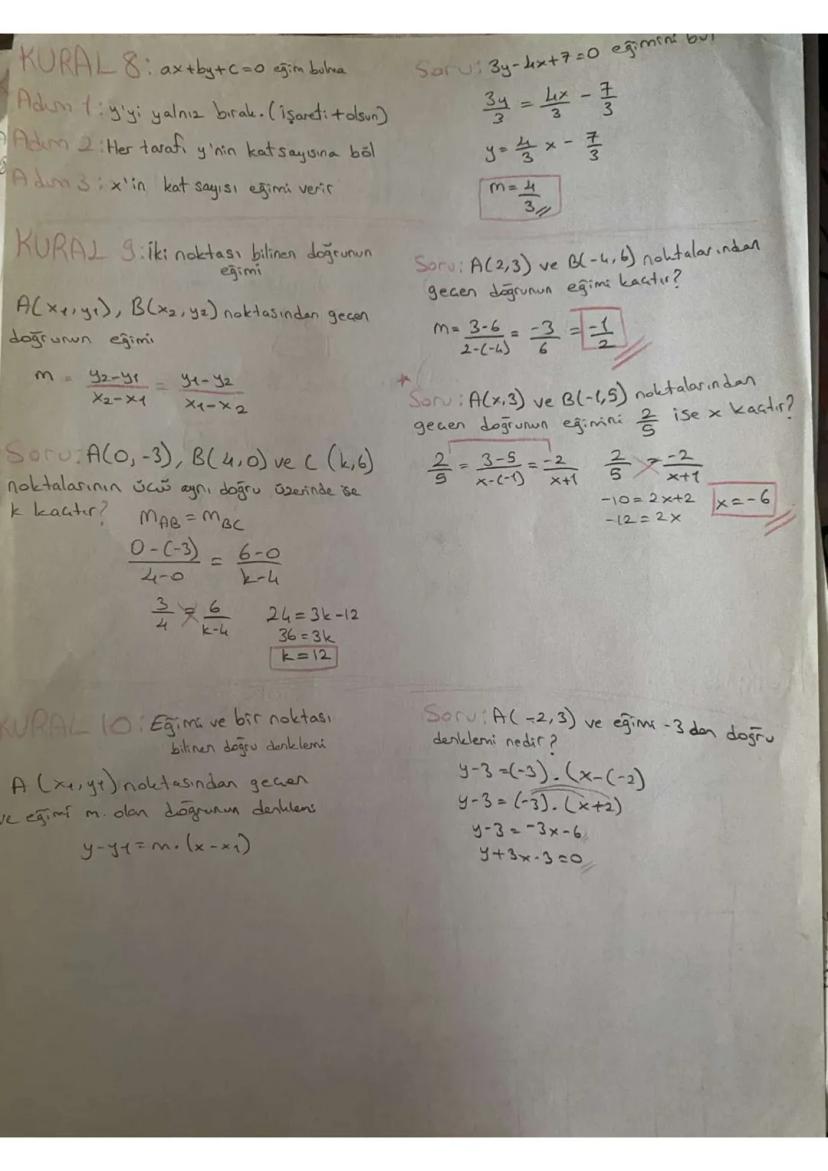 KURAL 8: ax+by+c=0 eğim bulma
Adım 1: y'yi yalnız bırak. (işareti + olsun)
Adım 2: Her tarafı y'nin katsayısına böl
Adım 3: x'in kat sayısı eğimi verir
Soru: 3y-4x+7=0 eğimini bul
3y/3 = 4x/3 - 7/3
y = 4/3 x - 7/3
m = 4/3
KURAL 9: İki noktası bilinen doğrunun
eğimi
A(x1,y1), B(x2,y2) noktasından geçen
doğrunun eğimi
m = y2-y1/x2-x1 = y1-y2/x1-x2
Soru: A(2,3) ve B(-4,6) noktalarından
geçen doğrunun eğimi kaçtır?
m = 3-6/2-(-4) = -3/6 = -1/2
* Soru: A(x,3) ve B(-1,5) noktalarından
geçen doğrunun eğimini 2/5 ise x kaçtır?
2/5 = 3-5/x-(-1) = -2/x+1
2/5 = -2/x+1
-10 = 2x+2
-12 = 2x
x = -6
Soru: A(0,-3), B(4,0) ve C (k,6)
noktalarının üçü aynı doğru üzerinde ise
k kaçtır?
mAB = mBC
0-(-3)/4-0 = 6-0/k-4
3/4 = 6/k-4
24 = 3k-12
36 = 3k
k = 12
KURAL 10: Eğimi ve bir noktası
bilinen doğru denklemi
A (x1,y1) noktasından geçen
ve eğimi m olan doğrunun denklemi
y-y1 = m.(x-x1)
Soru: A(-2,3) ve eğimi -3 dan doğru
denklemi nedir?
y-3 = (-3).(x-(-2)
y-3 = (-3).(x+2)
y-3 = -3x-6
y+3x-3=0